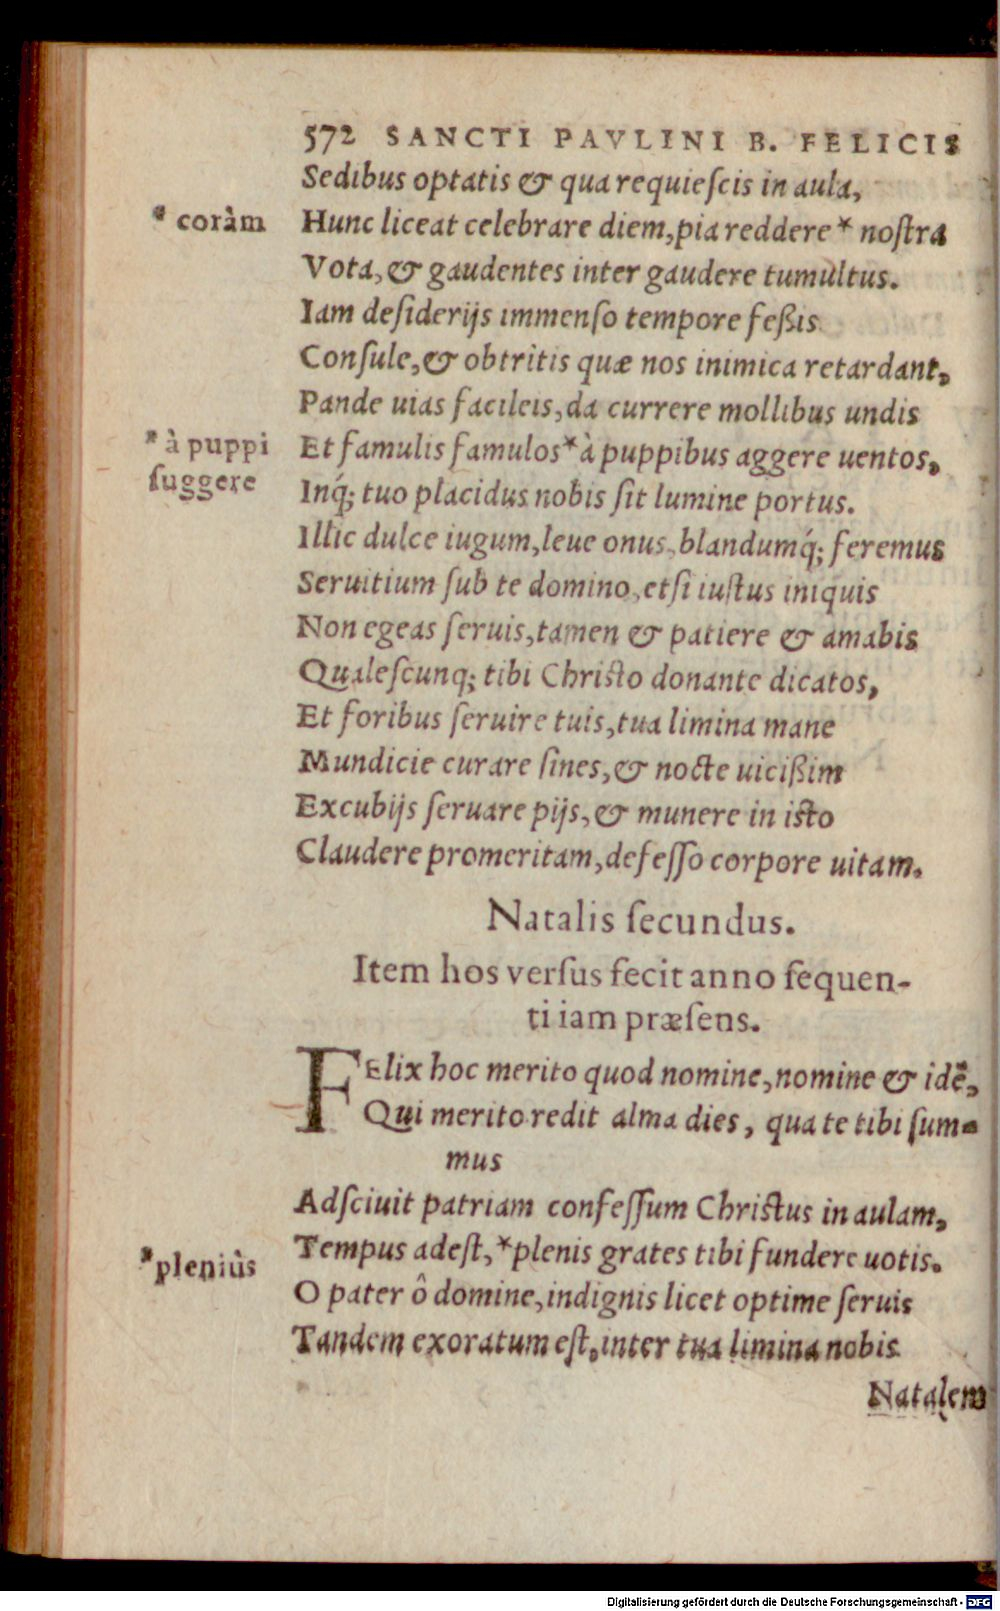 572 SANCTI PAVLINI B. FELICIS
Sedibus optatis & qua requieſcis in aula,
* coràm
Hunc liceat celebrare diem, pia reddere * noſtra
Vota, & gaudentes inter gaudere tumultus.
Iam deſiderijs immenſo tempore feßis
Conſule, & obtritis quæ nos inimica retardant,
Pande uias facileis, da currere mollibus undis
* à puppi
Et famulis famulos * à puppibus aggere uentos,
ſuggere
Inq́; tuo placidus nobis ſit lumine portus.
Illic dulce iugum, leue onus, blandumq́; feremus
Seruitium ſub te domino, etſi iuſtus iniquis
Non egeas ſeruis, tamen & patiere & amabis
Qualeſcunq; tibi Chriſto donante dicatos,
Et foribus ſeruire tuis, tua limina mane
Mundicie curare ſines, & nocte uicißim
Excubijs ſeruare pijs, & munere in iſto
Claudere promeritam, defeſſo corpore uitam.
Natalis ſecundus.
Item hos verſus fecit anno ſequen-
ti iam præſens.
FElix hoc merito quod nomine, nomine & idē,
Qui merito redit alma dies, qua te tibi ſum-
mus
Adſciuit patriam confeſſum Chriſtus in aulam,
* pleniùs
Tempus adeſt, * plenis grates tibi fundere uotis.
O pater ô domine, indignis licet optime ſeruis
Tandem exoratum eſt, inter tua limina nobis
Natalem
Digitalisierung gefördert durch die Deutsche Forschungsgemeinschaft - DFG